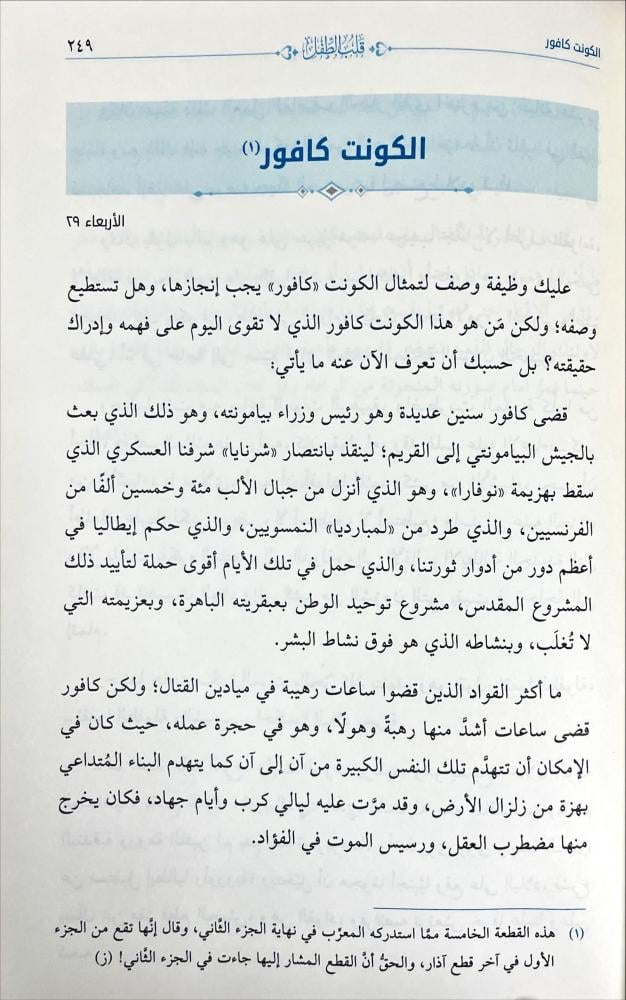 الكونت كافور
قلب الطفل
٢٤٩
الكونت كافور(١)
الأربعاء ٢٩
عليك وظيفة وصف لتمثال الكونت «كافور» يجب إنجازها، وهل تستطيع
وصفه؛ ولكن مَن هو هذا الكونت كافور الذي لا تقوى اليوم على فهمه وإدراك
حقيقته؟ بل حسبك أن تعرف الآن عنه ما يأتي:
قضى كافور سنين عديدة وهو رئيس وزراء بيامونته، وهو ذلك الذي بعث
بالجيش البيامونتي إلى القريم؛ لينقذ بانتصار «شرنايا» شرفنا العسكري الذي
سقط بهزيمة «نوفارا»، وهو الذي أنزل من جبال الألب مئة وخمسين ألفًا من
الفرنسيين، والذي طرد من «لمبارديا» النمسويين، والذي حكم إيطاليا في
أعظم دور من أدوار ثورتنا، والذي حمل في تلك الأيام أقوى حملة لتأييد ذلك
المشروع المقدس، مشروع توحيد الوطن بعبقريته الباهرة، وبعزيمته التي
لا تُغلَب، وبنشاطه الذي هو فوق نشاط البشر.
ما أكثر القواد الذين قضوا ساعات رهيبة في ميادين القتال؛ ولكن كافور
قضى ساعات أشدَّ منها رهبةً وهولًا، وهو في حجرة عمله، حيث كان في
الإمكان أن تتهدَّم تلك النفس الكبيرة من آن إلى آن كما يتهدم البناء المُتداعي
بهزة من زلزال الأرض، وقد مرَّت عليه ليالي كرب وأيام جهاد، فكان يخرج
منها مضطرب العقل، ورسيس الموت في الفؤاد.
(١) هذه القطعة الخامسة ممَّا استدركه المعرِّب في نهاية الجزء الثَّاني، وقال إنَّها تقع من الجزء
الأول في آخر قطع آذار، والحقُّ أنَّ القطع المشار إليها جاءت في الجزء الثَّاني! (ز)